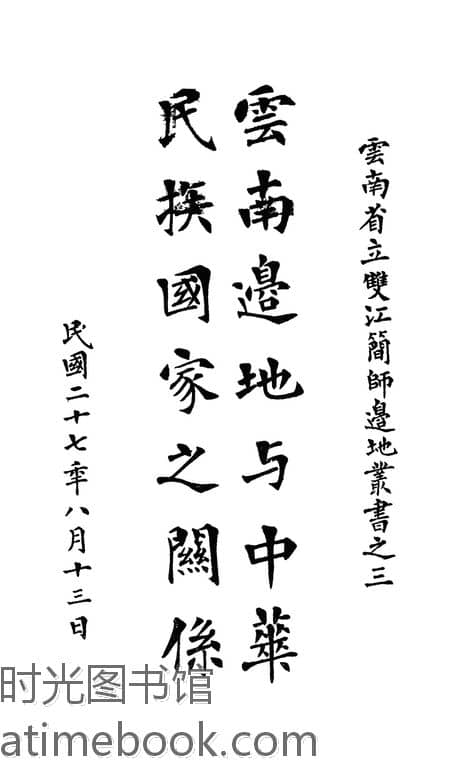 雲南省立雙江簡師邊地叢書之三
雲南邊地与中華
民族國家之關係
民國二十七年八月十三日
时光图书馆
atimebook.com